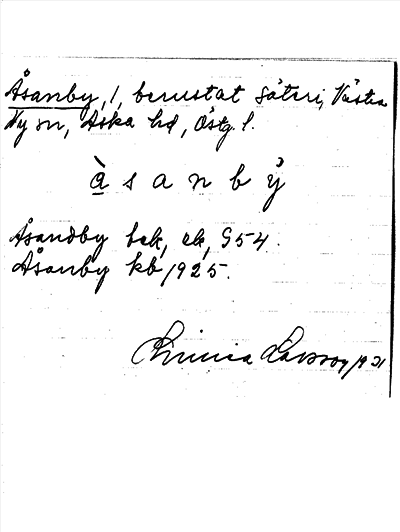 Åsanby, 1, berustat säteri, Västra
Ny sn, Aska hd, Östg. l.
å s a n b y
Åsandby bek, ek, 954.
Åsanby kb 1925.
Linnea Larsson